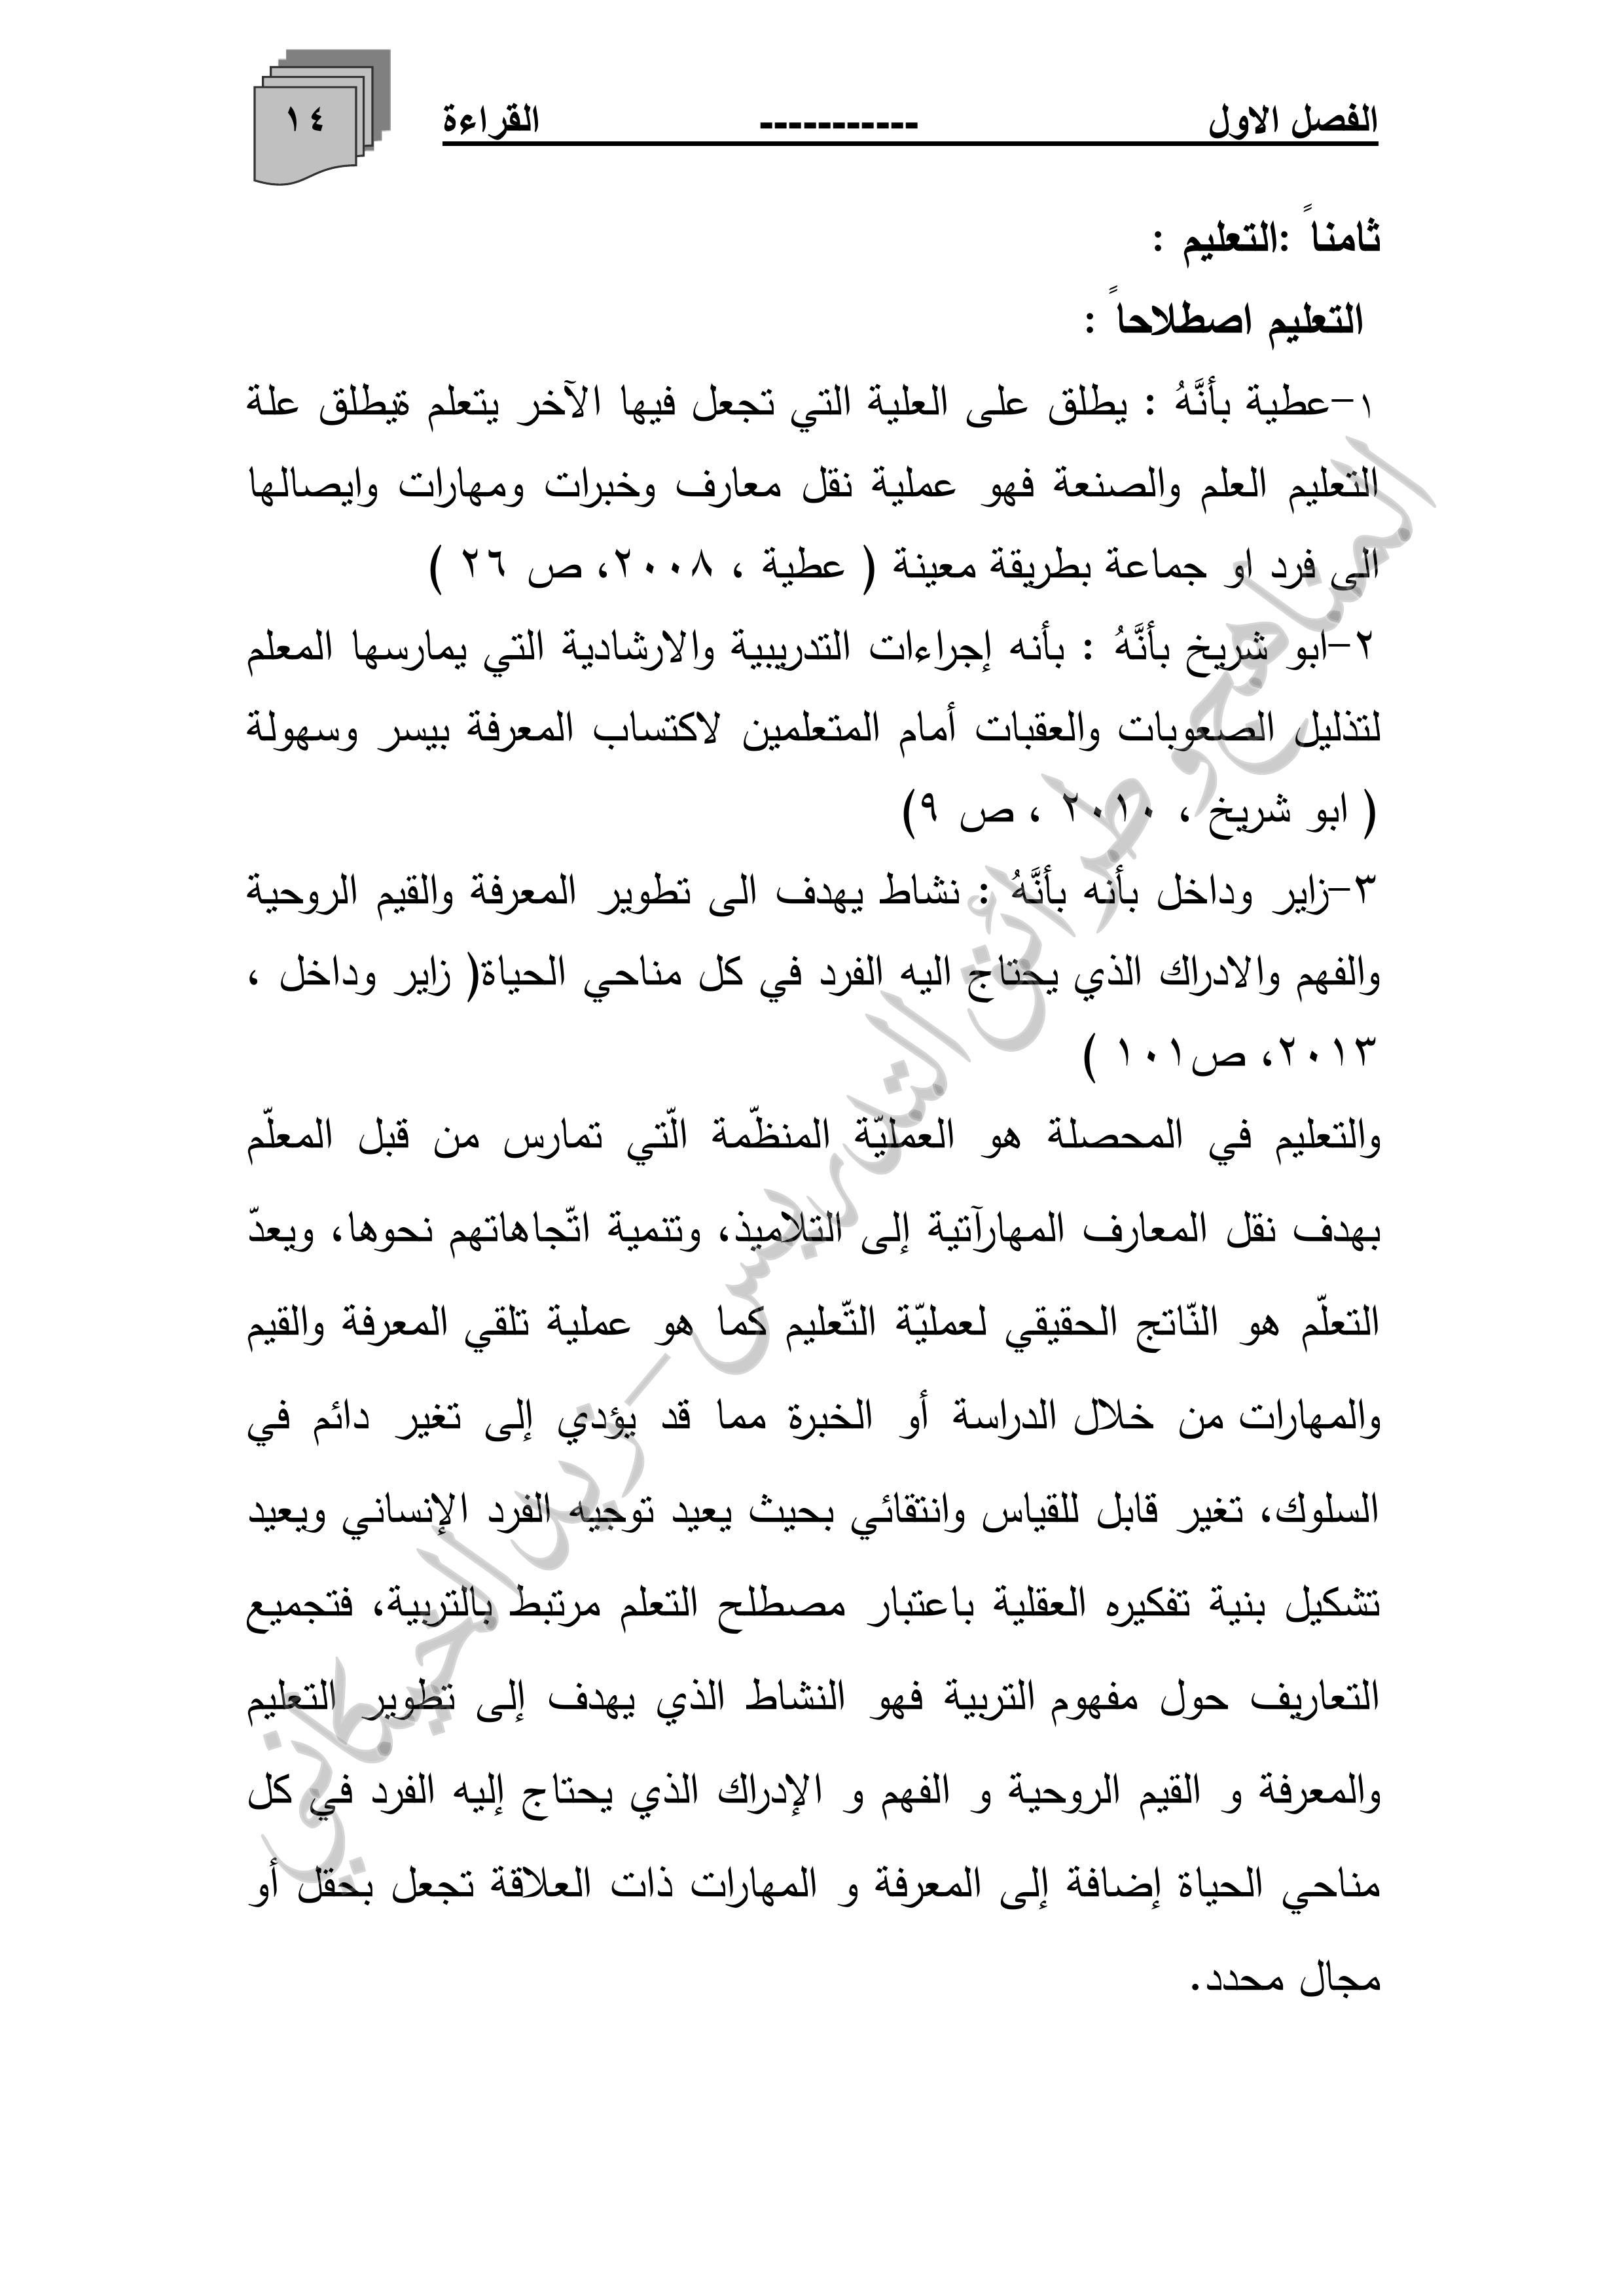 الفصل الاول ----------- القراءة ١٤
ثامناً :التعليم :
التعليم اصطلاحاً :
١-عطية بأنَّهُ : يطلق على العلية التي تجعل فيها الآخر يتعلم ةيطلق علة
التعليم العلم والصنعة فهو عملية نقل معارف وخبرات ومهارات وايصالها
الى فرد او جماعة بطريقة معينة ( عطية ، ٢٠٠٨، ص ٢٦ )
٢-ابو شريخ بأنَّهُ : بأنه إجراءات التدريبية والارشادية التي يمارسها المعلم
لتذليل الصعوبات والعقبات أمام المتعلمين لاكتساب المعرفة بيسر وسهولة
( ابو شريخ ، ٢٠١٠ ، ص ٩)
٣-زاير وداخل بأنه بأنَّهُ : نشاط يهدف الى تطوير المعرفة والقيم الروحية
والفهم والادراك الذي يحتاج اليه الفرد في كل مناحي الحياة( زاير وداخل ،
٢٠١٣، ص١٠١ )
والتعليم في المحصلة هو العمليّة المنظّمة الّتي تمارس من قبل المعلّم
بهدف نقل المعارف المهارآتية إلى التلاميذ، وتنمية اتّجاهاتهم نحوها، ويعدّ
التعلّم هو النّاتج الحقيقي لعمليّة التّعليم كما هو عملية تلقي المعرفة والقيم
والمهارات من خلال الدراسة أو الخبرة مما قد يؤدي إلى تغير دائم في
السلوك، تغير قابل للقياس وانتقائي بحيث يعيد توجيه الفرد الإنساني ويعيد
تشكيل بنية تفكيره العقلية باعتبار مصطلح التعلم مرتبط بالتربية، فتجميع
التعاريف حول مفهوم التربية فهو النشاط الذي يهدف إلى تطوير التعليم
والمعرفة و القيم الروحية و الفهم و الإدراك الذي يحتاج إليه الفرد في كل
مناحي الحياة إضافة إلى المعرفة و المهارات ذات العلاقة تجعل بحقل أو
مجال محدد.
المناهج وطرائق التدريس - زيد الحيكاني